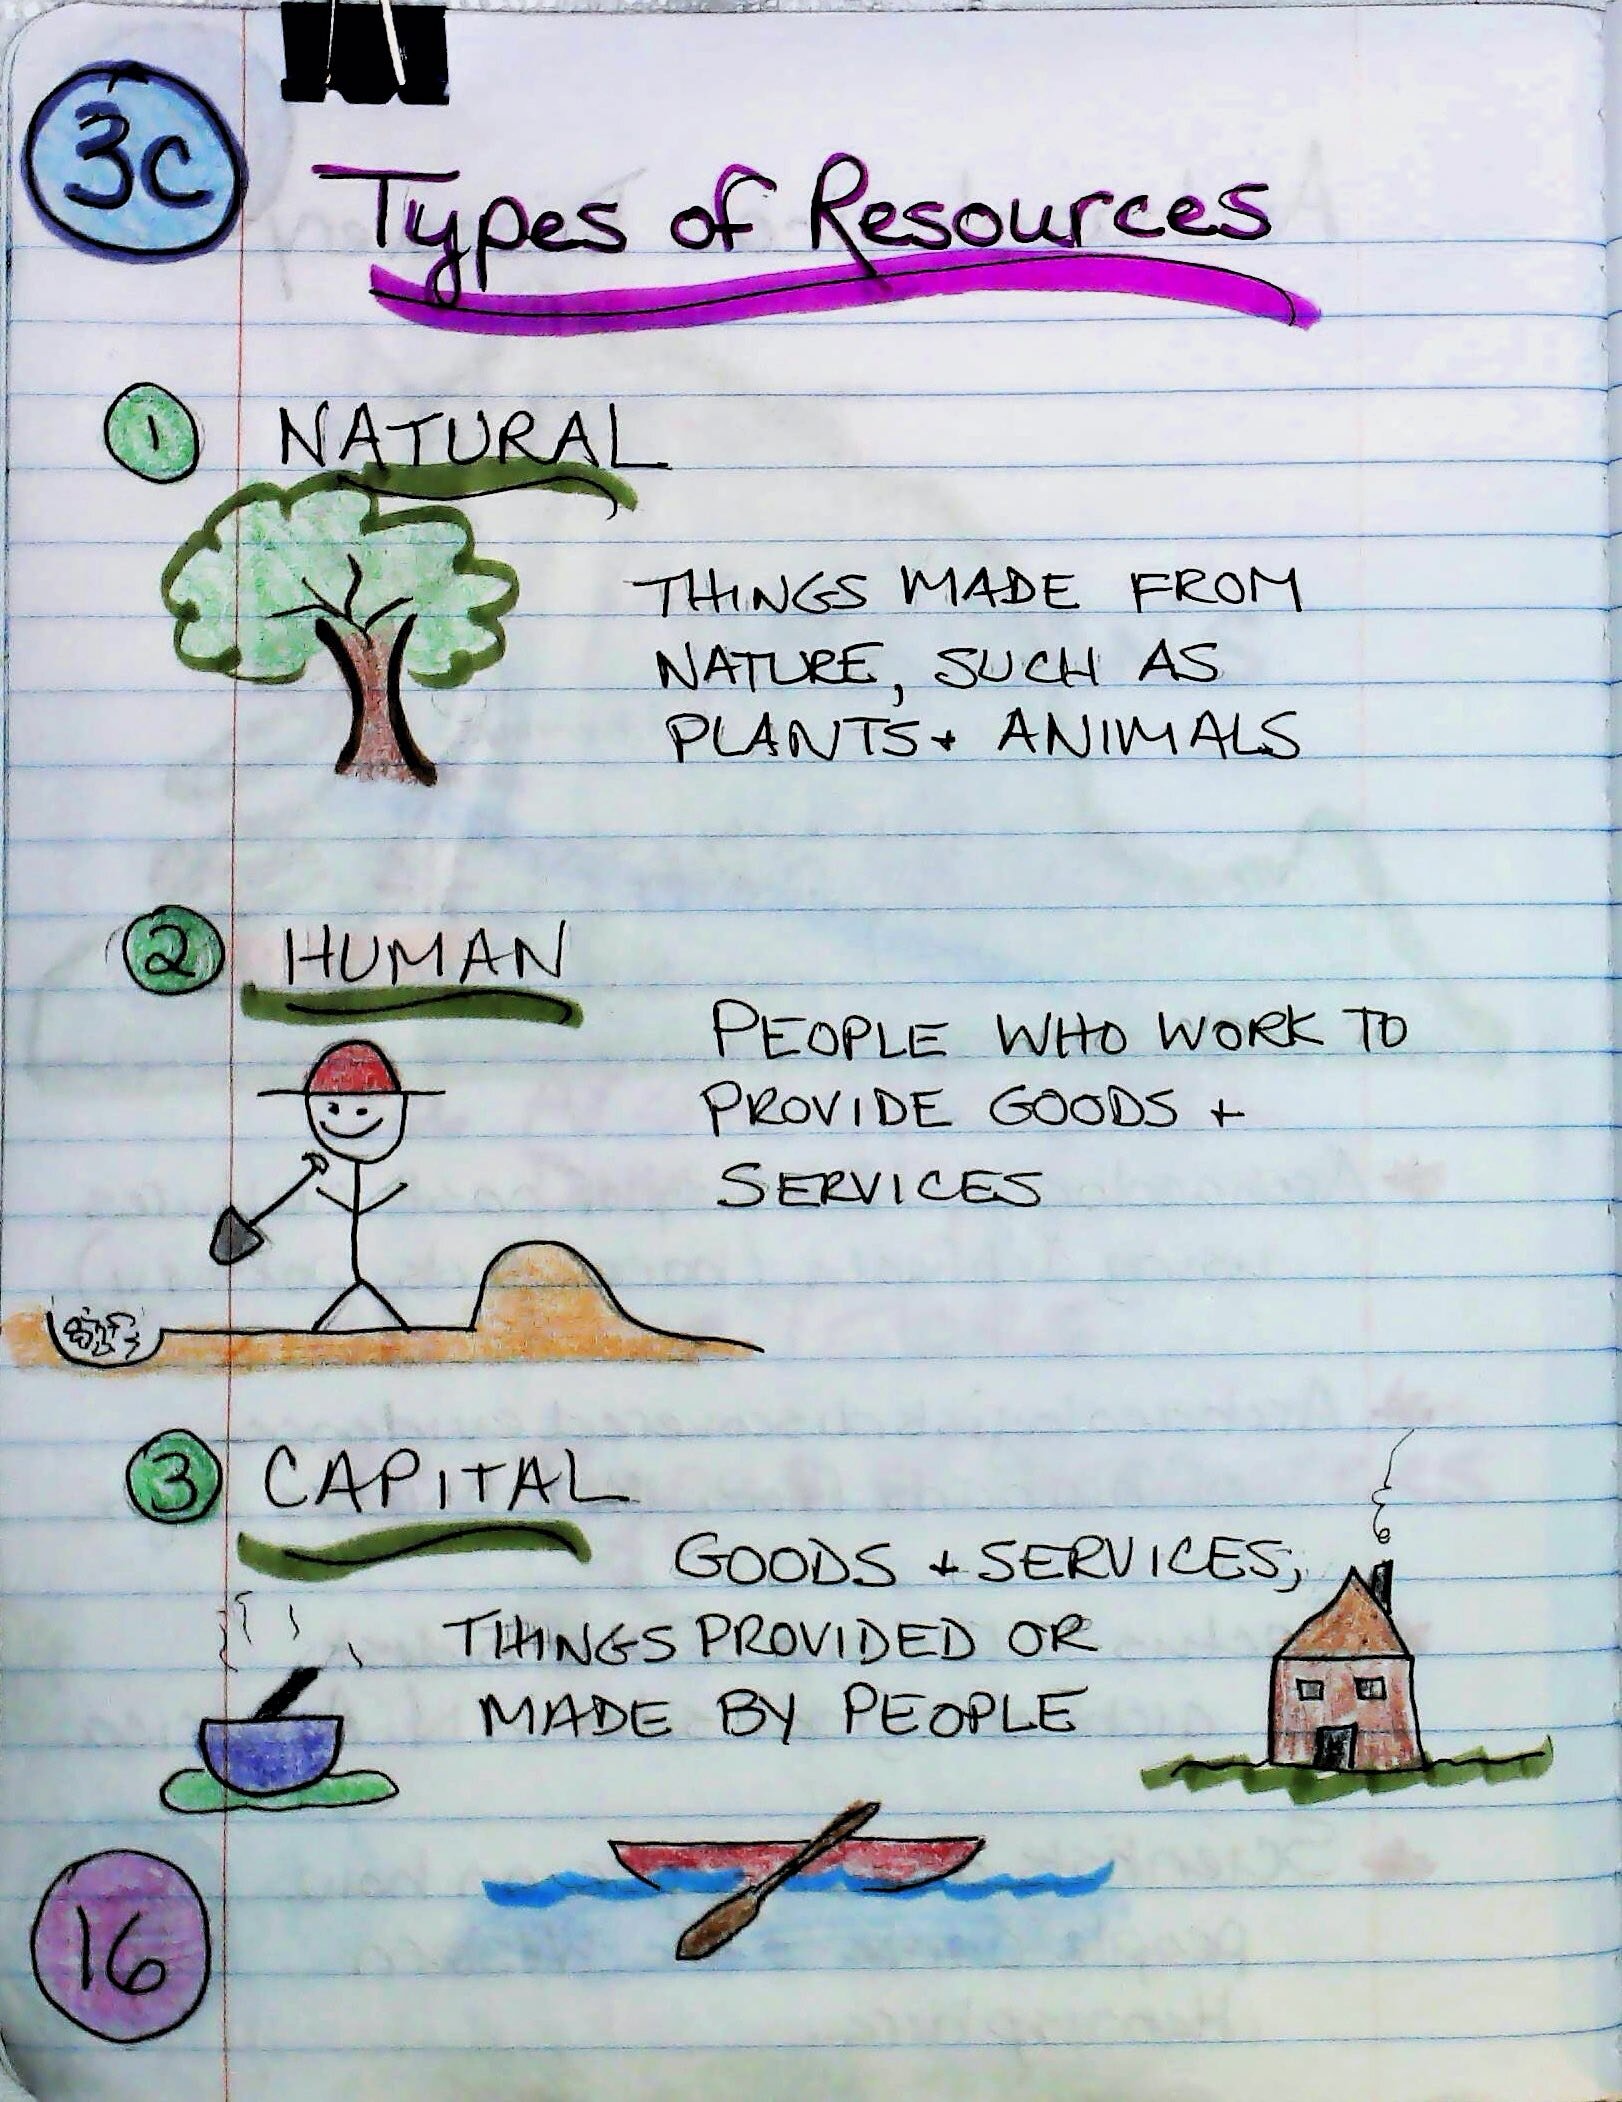 3C
Types of Resources
1 NATURAL
THINGS MADE FROM
NATURE, SUCH AS
PLANTS + ANIMALS
2 HUMAN
PEOPLE WHO WORK TO
PROVIDE GOODS +
SERVICES
3 CAPITAL
GOODS + SERVICES,
THINGS PROVIDED OR
MADE BY PEOPLE
16